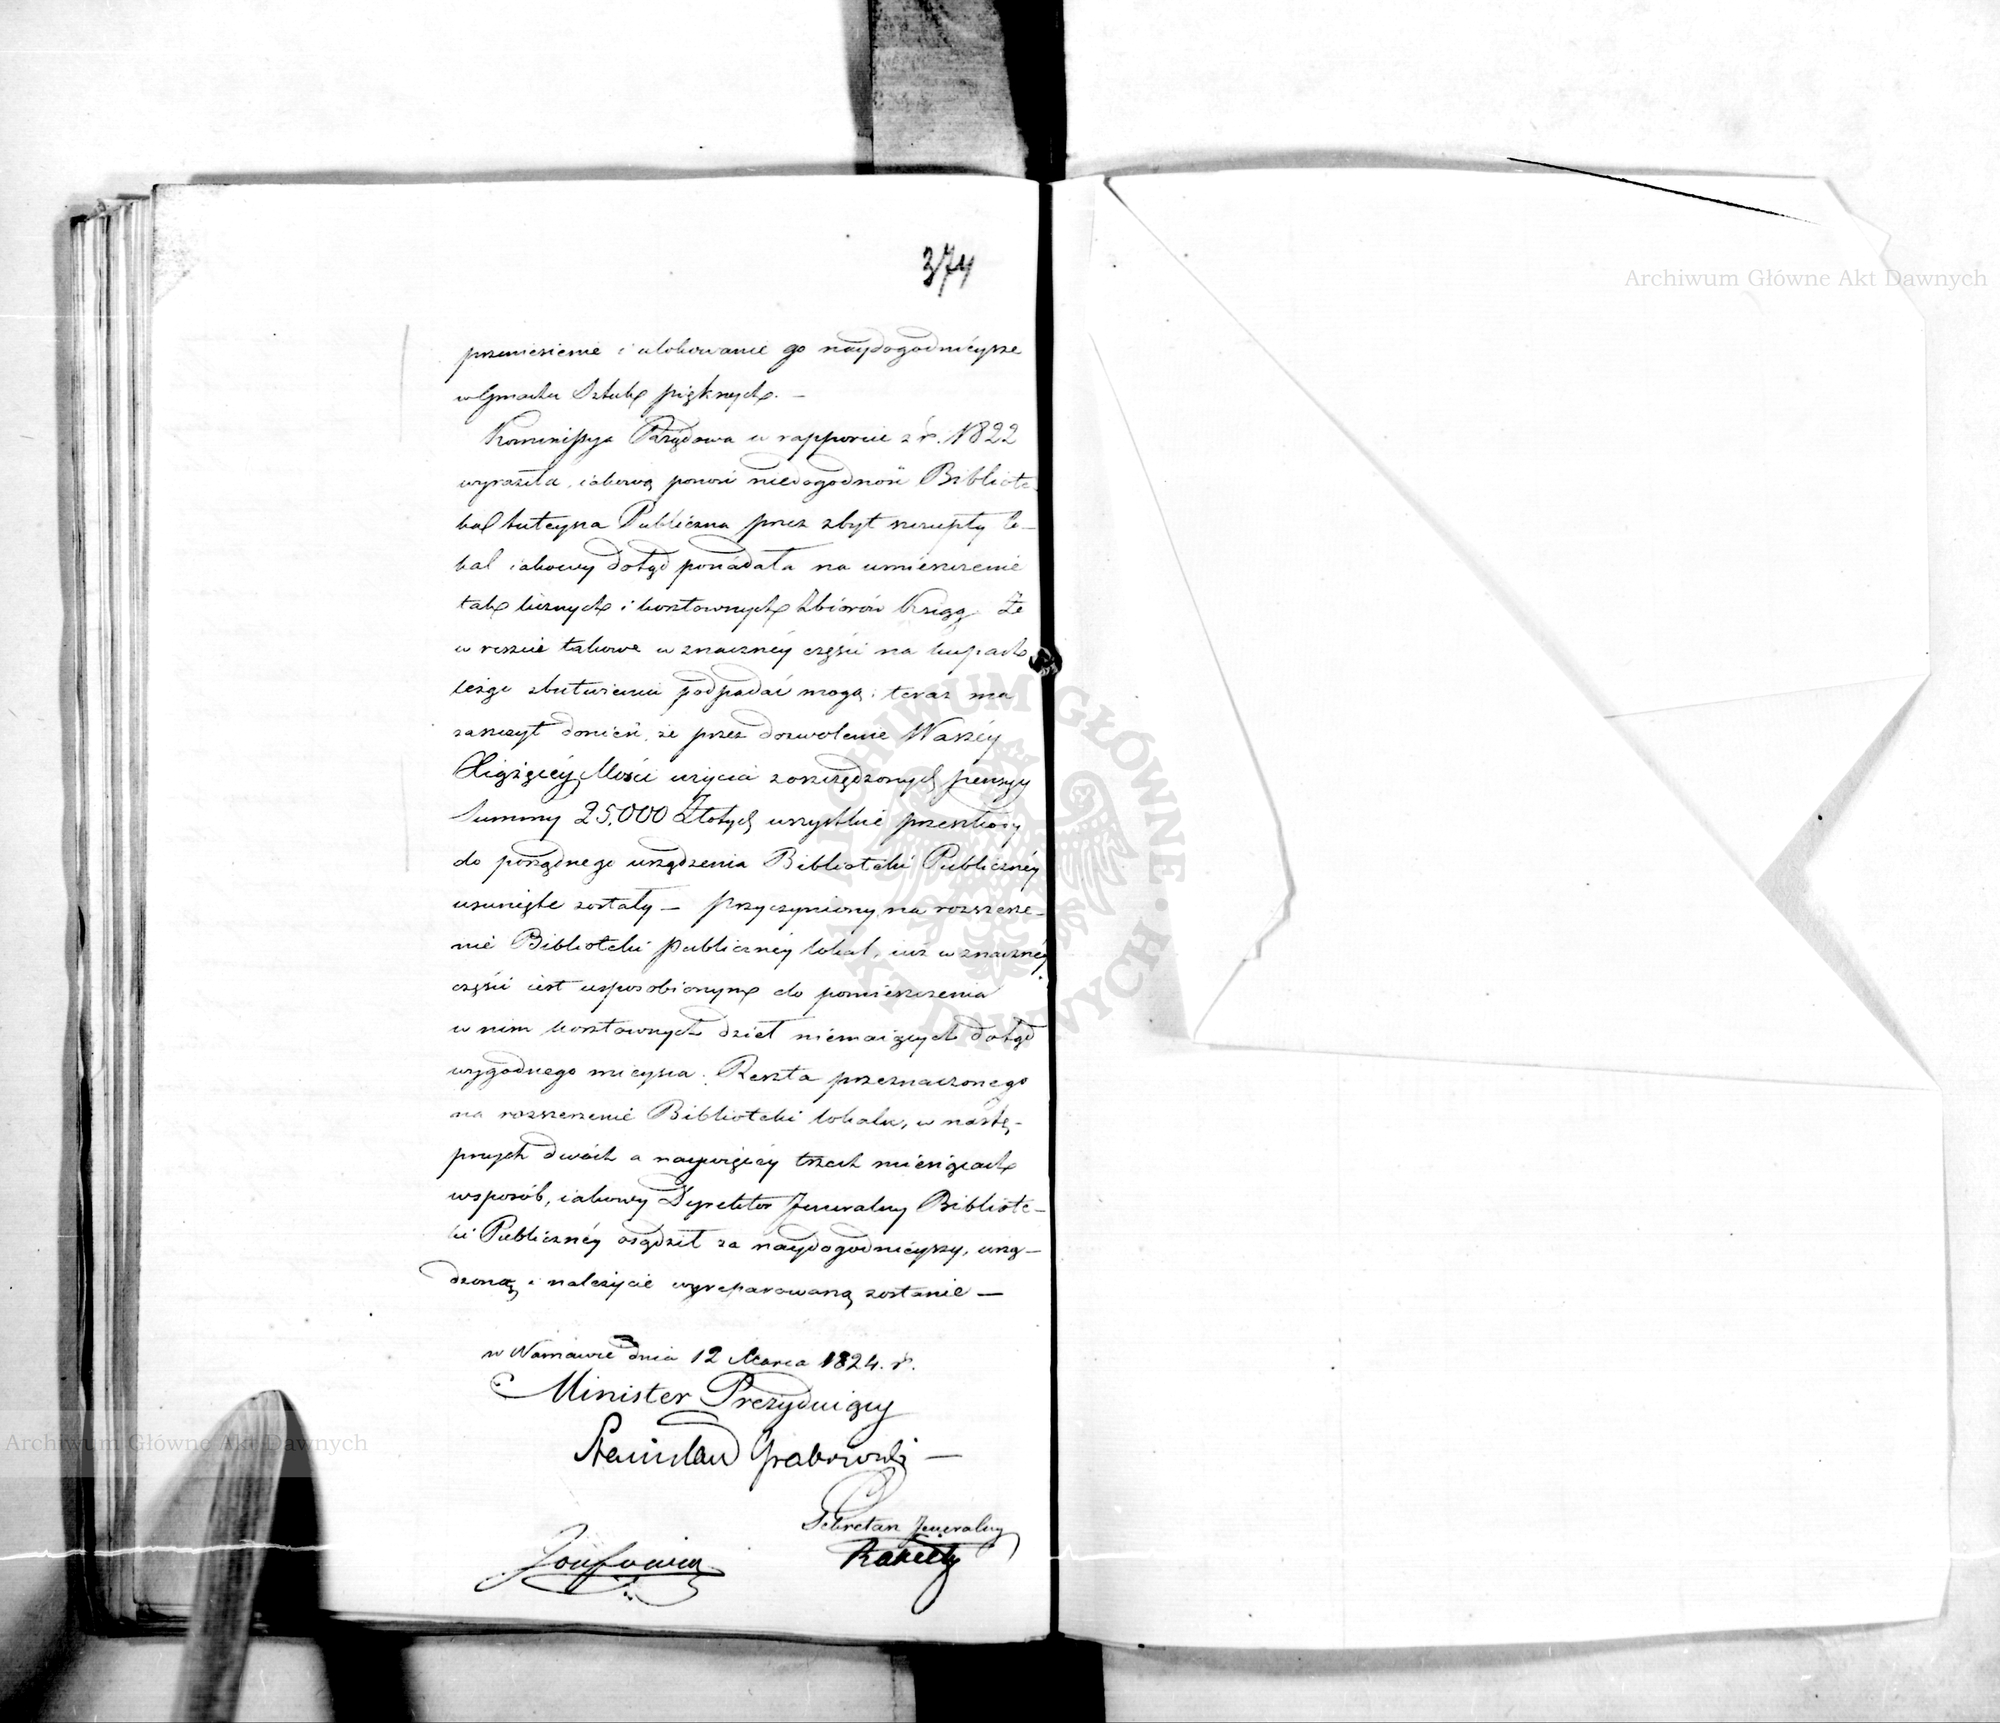 374
przeniesienie i ulokowanie go naydogodnieysze
w Gmachu Sztuk pięknych. —
Kommissya Rządowa w rapporcie z r. 1822
wyraziła, iakową ponosi niedogodność Bibliote-
ka tuteysza Publiczna przez zbyt szczupły lo-
kal iakowy dotąd posiadała na umieszczenie
tak licznych i kosztownych Zbiorów Ksiąg. Że
w reszcie takowe w znacznéy części na kupach
leżąc zbutwieniu podpadać mogą; teraz ma
zaszczyt donieść, że przez dozwolenie Waszéy
Xiążęcéy Mości użycia zoszczędzonych pensyy
Summy 25.000 Złotych wszystkie przeszkody
do porządnego urządzenia Biblioteki Publicznéy
usunięte zostały — przyczyniony na rozszerze-
nie Biblioteki Publicznéy lokal, iuż w znacznéy
części iest usposobionym do pomieszczenia
w nim kosztownych dzieł niemaiących dotąd
wygodnego mieysca. Reszta przeznaczonego
na rozszerzenie Biblioteki lokalu, w nastę-
pnych dwóch a naywięcéy trzech miesiącach
w sposób, iakowy Dyrektor Jeneralny Bibliote-
ki Publicznéy osądził za naydogodnieyszy, urzą-
dzoną i należycie wyreparowaną zostanie —
w Warszawie dnia 12 Marca 1824. r.
Minister Prezyduiący
Stanisław Grabowski —
Sekretarz Jeneralny
Archiwum Główne Akt Dawnych
Archiwum Główne Akt Dawnych
ARCHIWUM GŁÓWNE AKT DAWNYCH